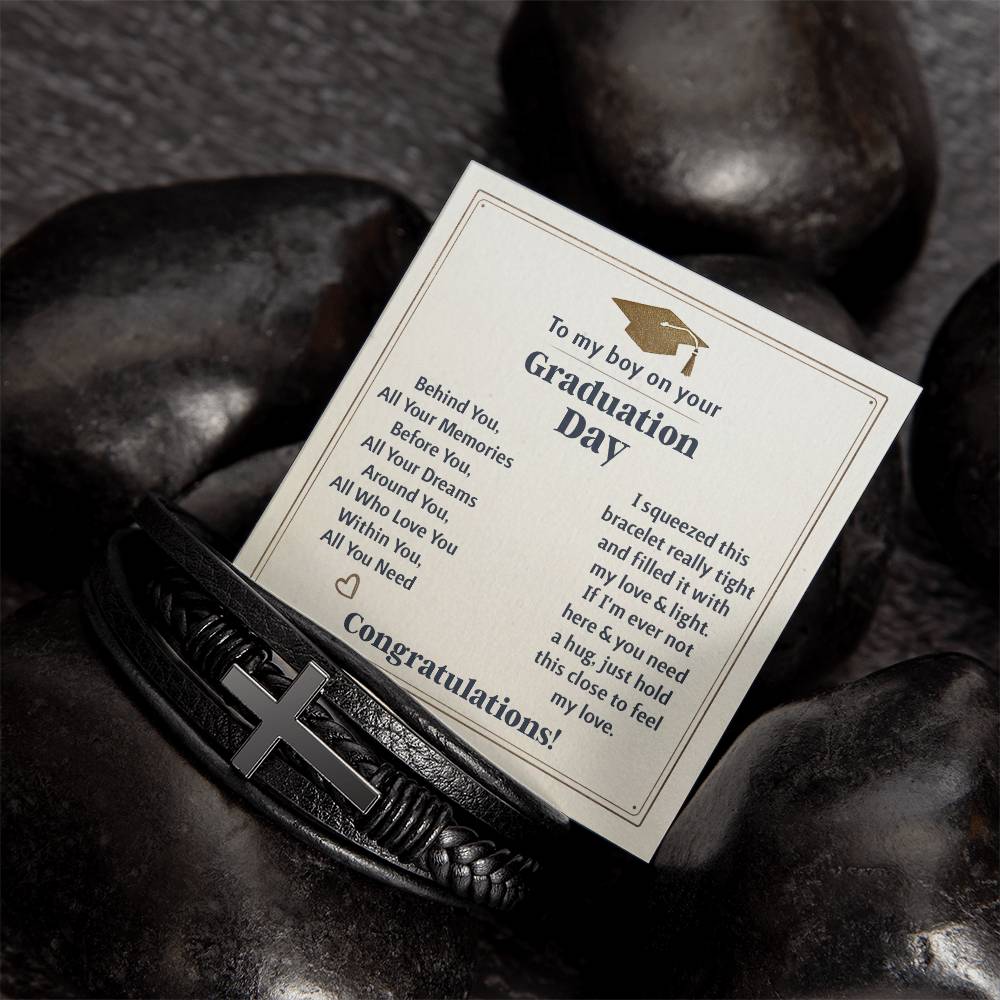 To my boy on your
Graduation
Day
Behind You,
All Your Memories
Before You,
All Your Dreams
Around You,
All Who Love You
Within You,
All You Need
I squeezed this
bracelet really tight
and filled it with
my love & light.
If I'm ever not
here & you need
a hug, just hold
this close to feel
my love.
Congratulations!